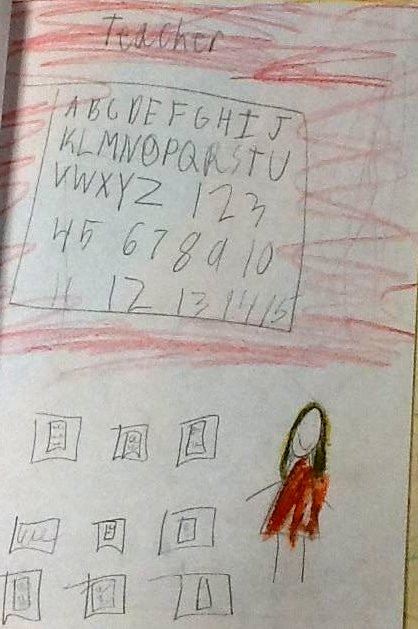 Teacher
A B C D E F G H I J
K L M N O P Q R S T U
V W X Y Z 1 2 3
4 5 6 7 8 9 10
11 12 13 14 15